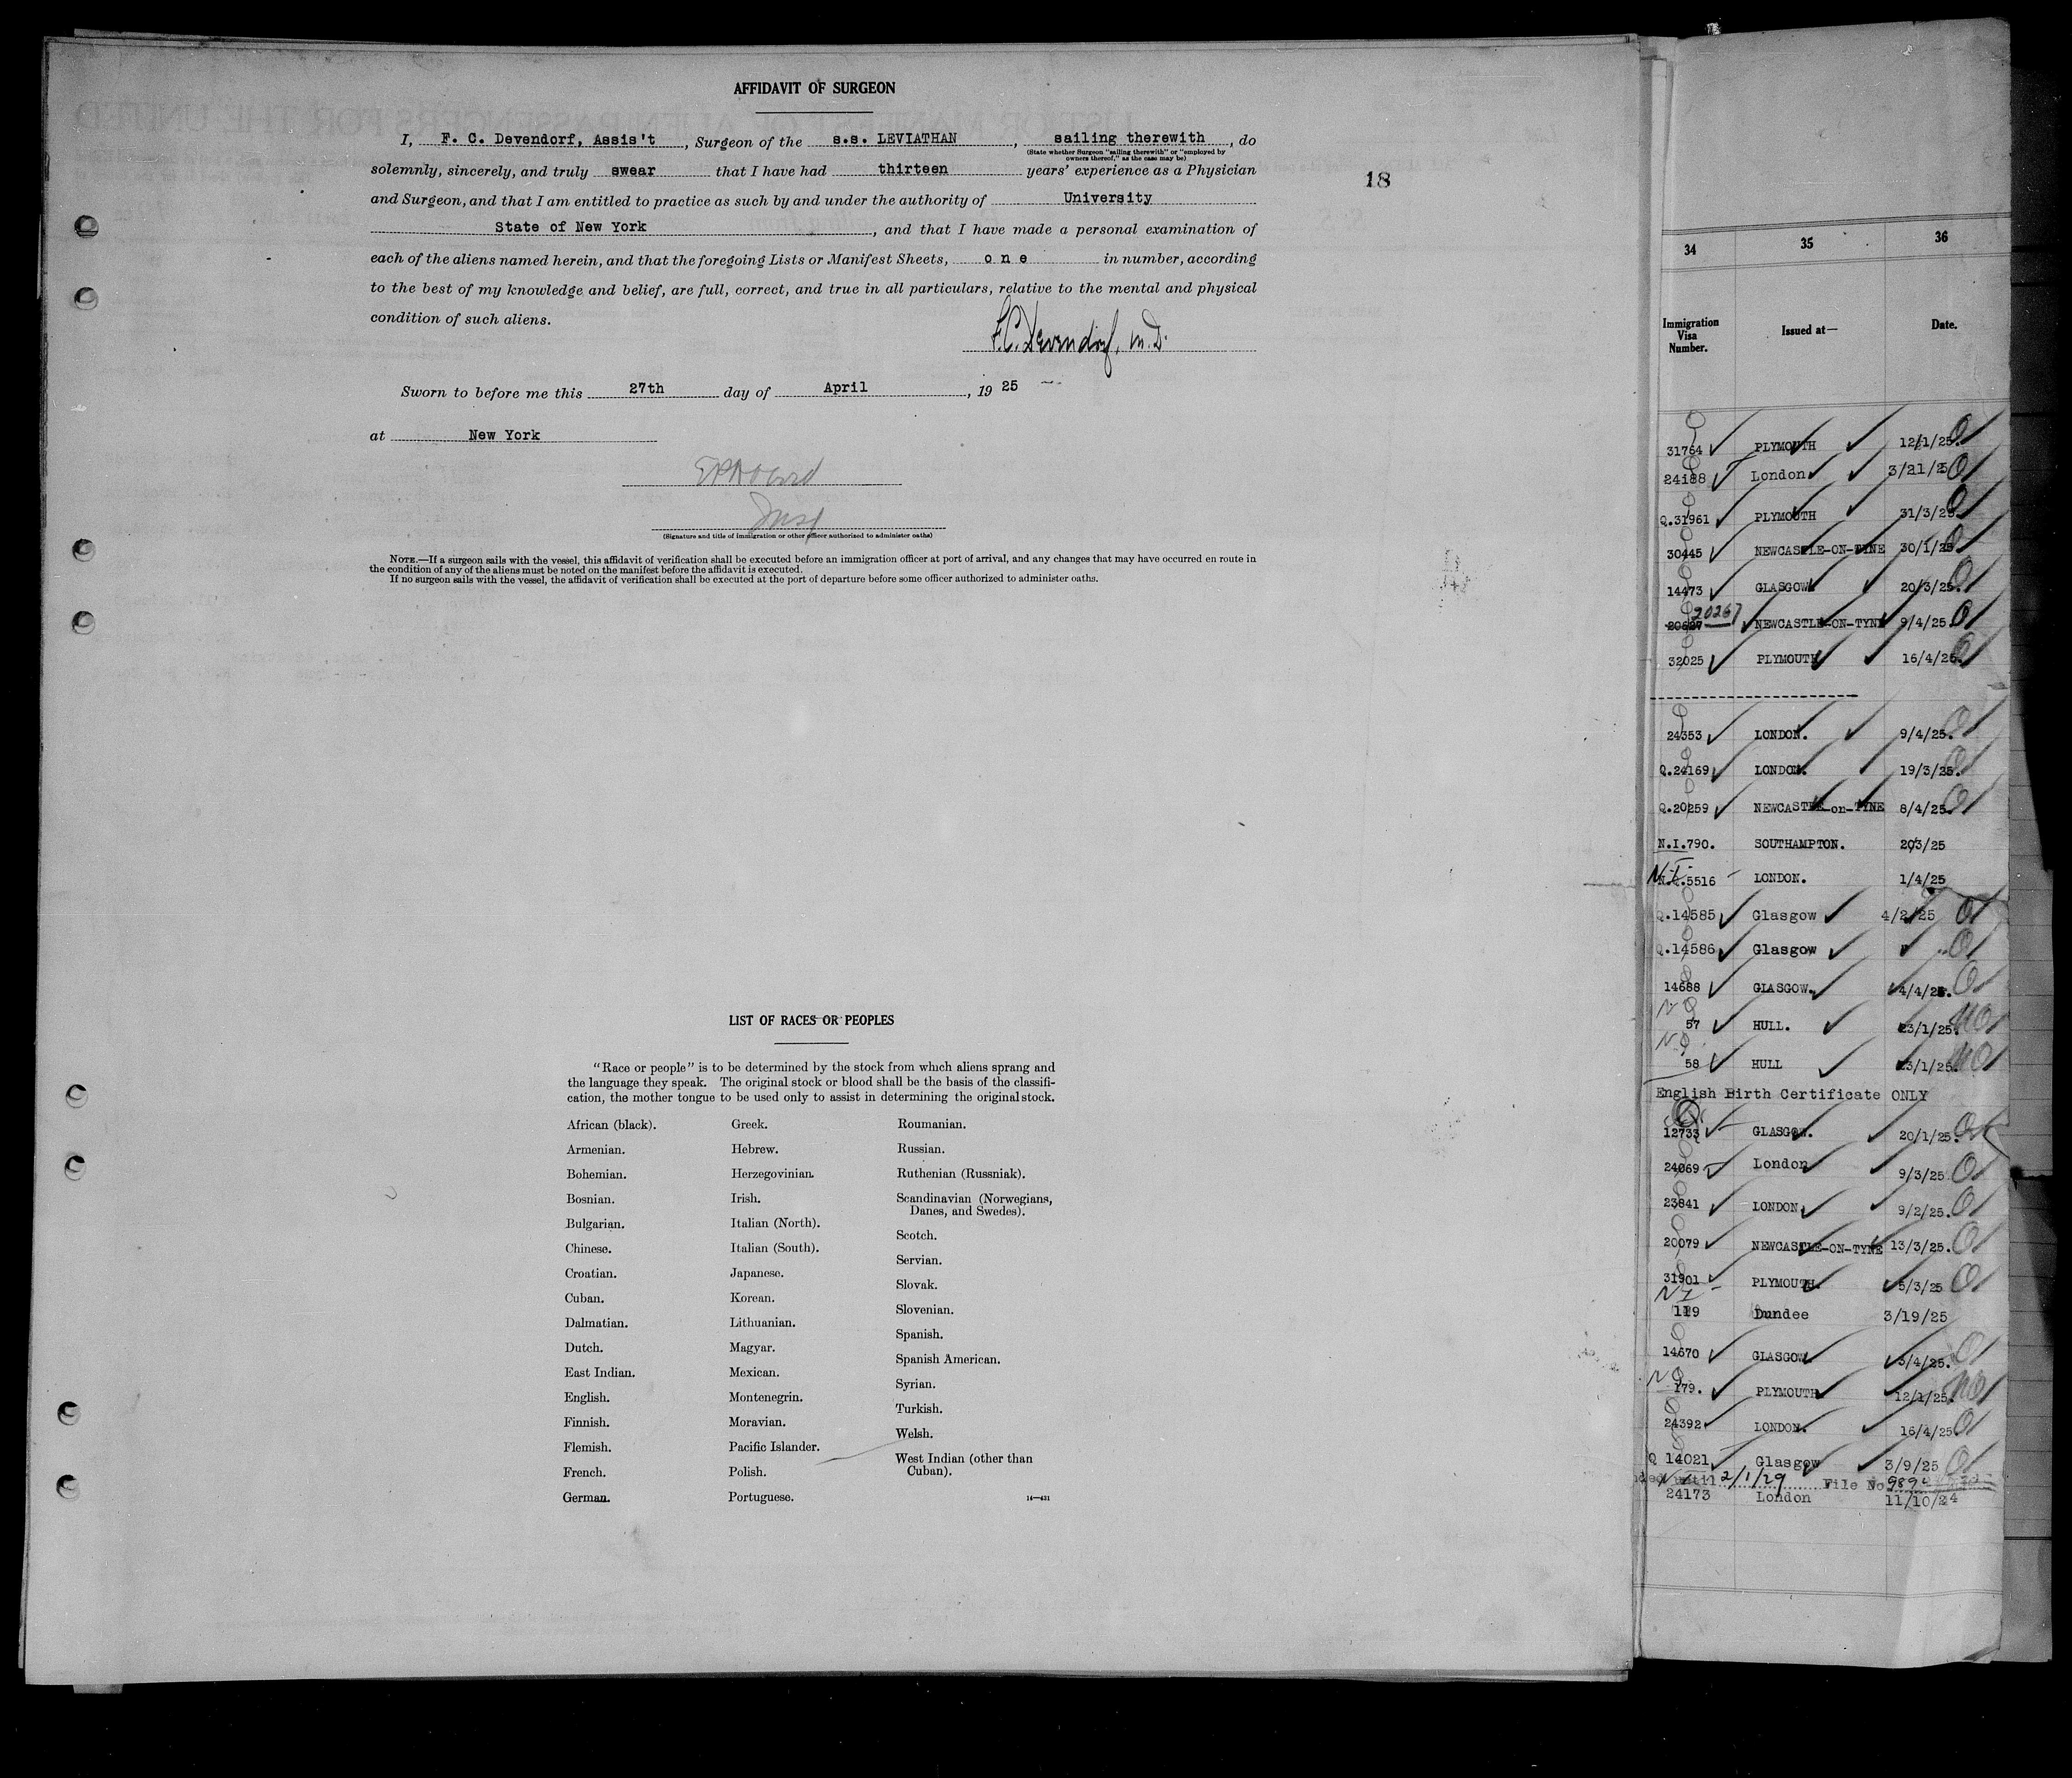 AFFIDAVIT OF SURGEON
I, F. C. Devendorf, Assis't, Surgeon of the s.s. LEVIATHAN, sailing therewith, do
(State whether Surgeon "sailing therewith" or "employed by
owners thereof," as the case may be)
solemnly, sincerely, and truly swear that I have had thirteen years' experience as a Physician
18
and Surgeon, and that I am entitled to practice as such by and under the authority of University
State of New York, and that I have made a personal examination of
each of the aliens named herein, and that the foregoing Lists or Manifest Sheets, one in number, according
to the best of my knowledge and belief, are full, correct, and true in all particulars, relative to the mental and physical
condition of such aliens.
F.C. Devendorf, M.D.
Sworn to before me this 27th day of April, 1925
at New York
(Signature and title of immigration or other officer authorized to administer oaths)
NOTE.—If a surgeon sails with the vessel, this affidavit of verification shall be executed before an immigration officer at port of arrival, and any changes that may have occurred en route in
the condition of any of the aliens must be noted on the manifest before the affidavit is executed.
If no surgeon sails with the vessel, the affidavit of verification shall be executed at the port of departure before some officer authorized to administer oaths.
LIST OF RACES OR PEOPLES
"Race or people" is to be determined by the stock from which aliens sprang and
the language they speak. The original stock or blood shall be the basis of the classifi-
cation, the mother tongue to be used only to assist in determining the original stock.
African (black).
Armenian.
Bohemian.
Bosnian.
Bulgarian.
Chinese.
Croatian.
Cuban.
Dalmatian.
Dutch.
East Indian.
English.
Finnish.
Flemish.
French.
German.
Greek.
Hebrew.
Herzegovinian.
Irish.
Italian (North).
Italian (South).
Japanese.
Korean.
Lithuanian.
Magyar.
Mexican.
Montenegrin.
Moravian.
Pacific Islander.
Polish.
Portuguese.
Roumanian.
Russian.
Ruthenian (Russniak).
Scandinavian (Norwegians,
Danes, and Swedes).
Scotch.
Servian.
Slovak.
Slovenian.
Spanish.
Spanish American.
Syrian.
Turkish.
Welsh.
West Indian (other than
Cuban).
14—431
34 35 36
Immigration Visa Number. Issued at— Date.
31764 PLYMOUTH 12/1/25.
24188 London 3/21/25
Q.31961 PLYMOUTH 31/3/25
30445 NEWCASTLE-ON-TYNE 30/1/25
14473 GLASGOW 20/3/25.
20267 NEWCASTLE-ON-TYNE 9/4/25.
32025 PLYMOUTH 16/4/25.
24353 LONDON. 9/4/25.
Q.24169 LONDON. 19/3/25.
Q.20259 NEWCASTLE-on-TYNE 8/4/25.
N.I.790. SOUTHAMPTON. 20/3/25
N.I. 5516 LONDON. 1/4/25
Q.14585 Glasgow 4/2/25
Q.14586 Glasgow " "
14688 GLASGOW. 4/4/25.
NQ 57 HULL. 23/1/25.
NQ 58 HULL 23/1/25.
English Birth Certificate ONLY
12733 GLASGOW. 20/1/25.
24069 London 9/3/25
23841 LONDON. 9/2/25.
20079 NEWCASTLE-ON-TYNE 13/3/25.
31901 PLYMOUTH. 5/3/25
NI
119 Dundee 3/19/25
14670 GLASGOW 3/4/25.
NQ 179. PLYMOUTH 12/1/25.
24392 LONDON. 16/4/25
Q 14021 Glasgow 3/9/25
until 2/1/29 File No.
24173 London 11/10/24